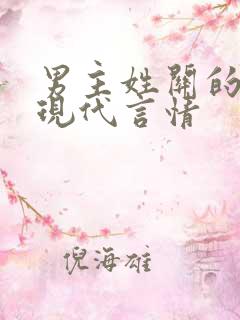 男主姓關的
現代言情
倪海雄